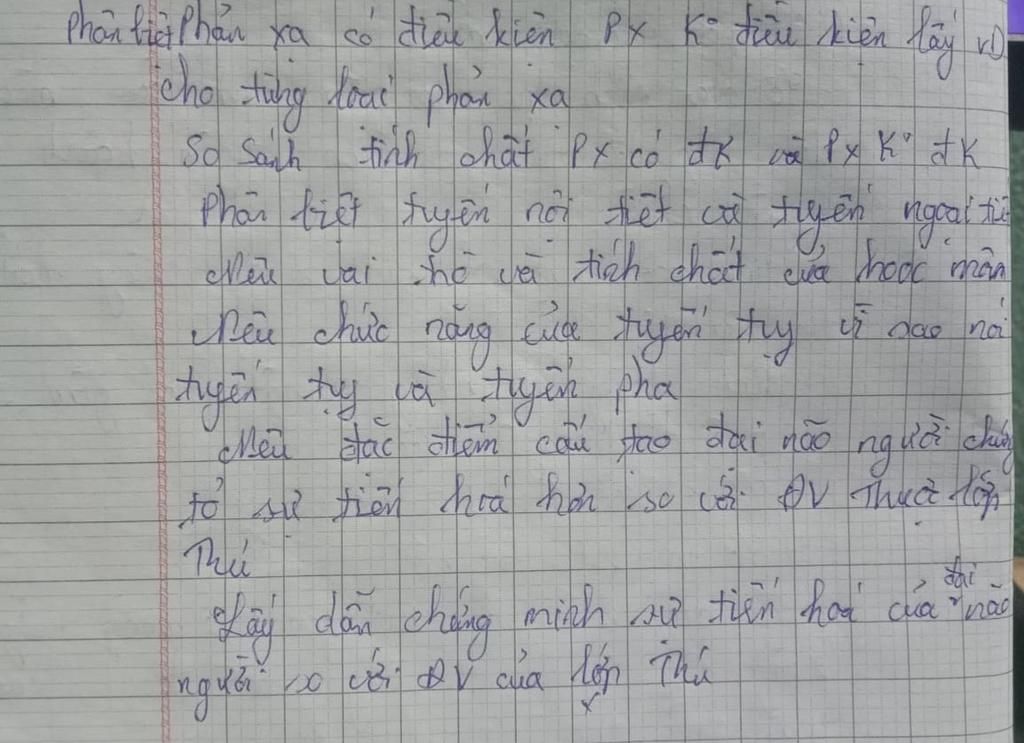 Phân biệt Phản xạ có điều kiện Px K° điều kiện lấy VD
cho từng loại phản xạ
So sánh tính chất Px có đk và Px K° đk
Phân biệt tuyến nội tiết và tuyến ngoại tiế
Nêu vai trò và tính chất của hooc môn
Nêu chức năng của tuyến tụy vì sao nói
tuyến tụy và tuyến pha
Nêu đặc điểm cấu tạo đại não người chứng
tỏ sự tiến hoá hơn so với ĐV Thuộc lớp
Thú
Lấy dẫn chứng minh sự tiến hoá của đại não
người so với ĐV của lớp Thú